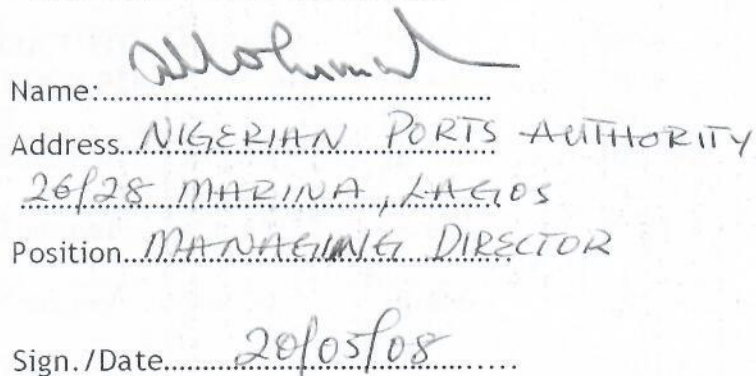 Name:..........................................
Address..NIGERIAN PORTS AUTHORITY
26/28 MARINA, LAGOS
Position..MANAGING DIRECTOR
Sign./Date........20/05/08............